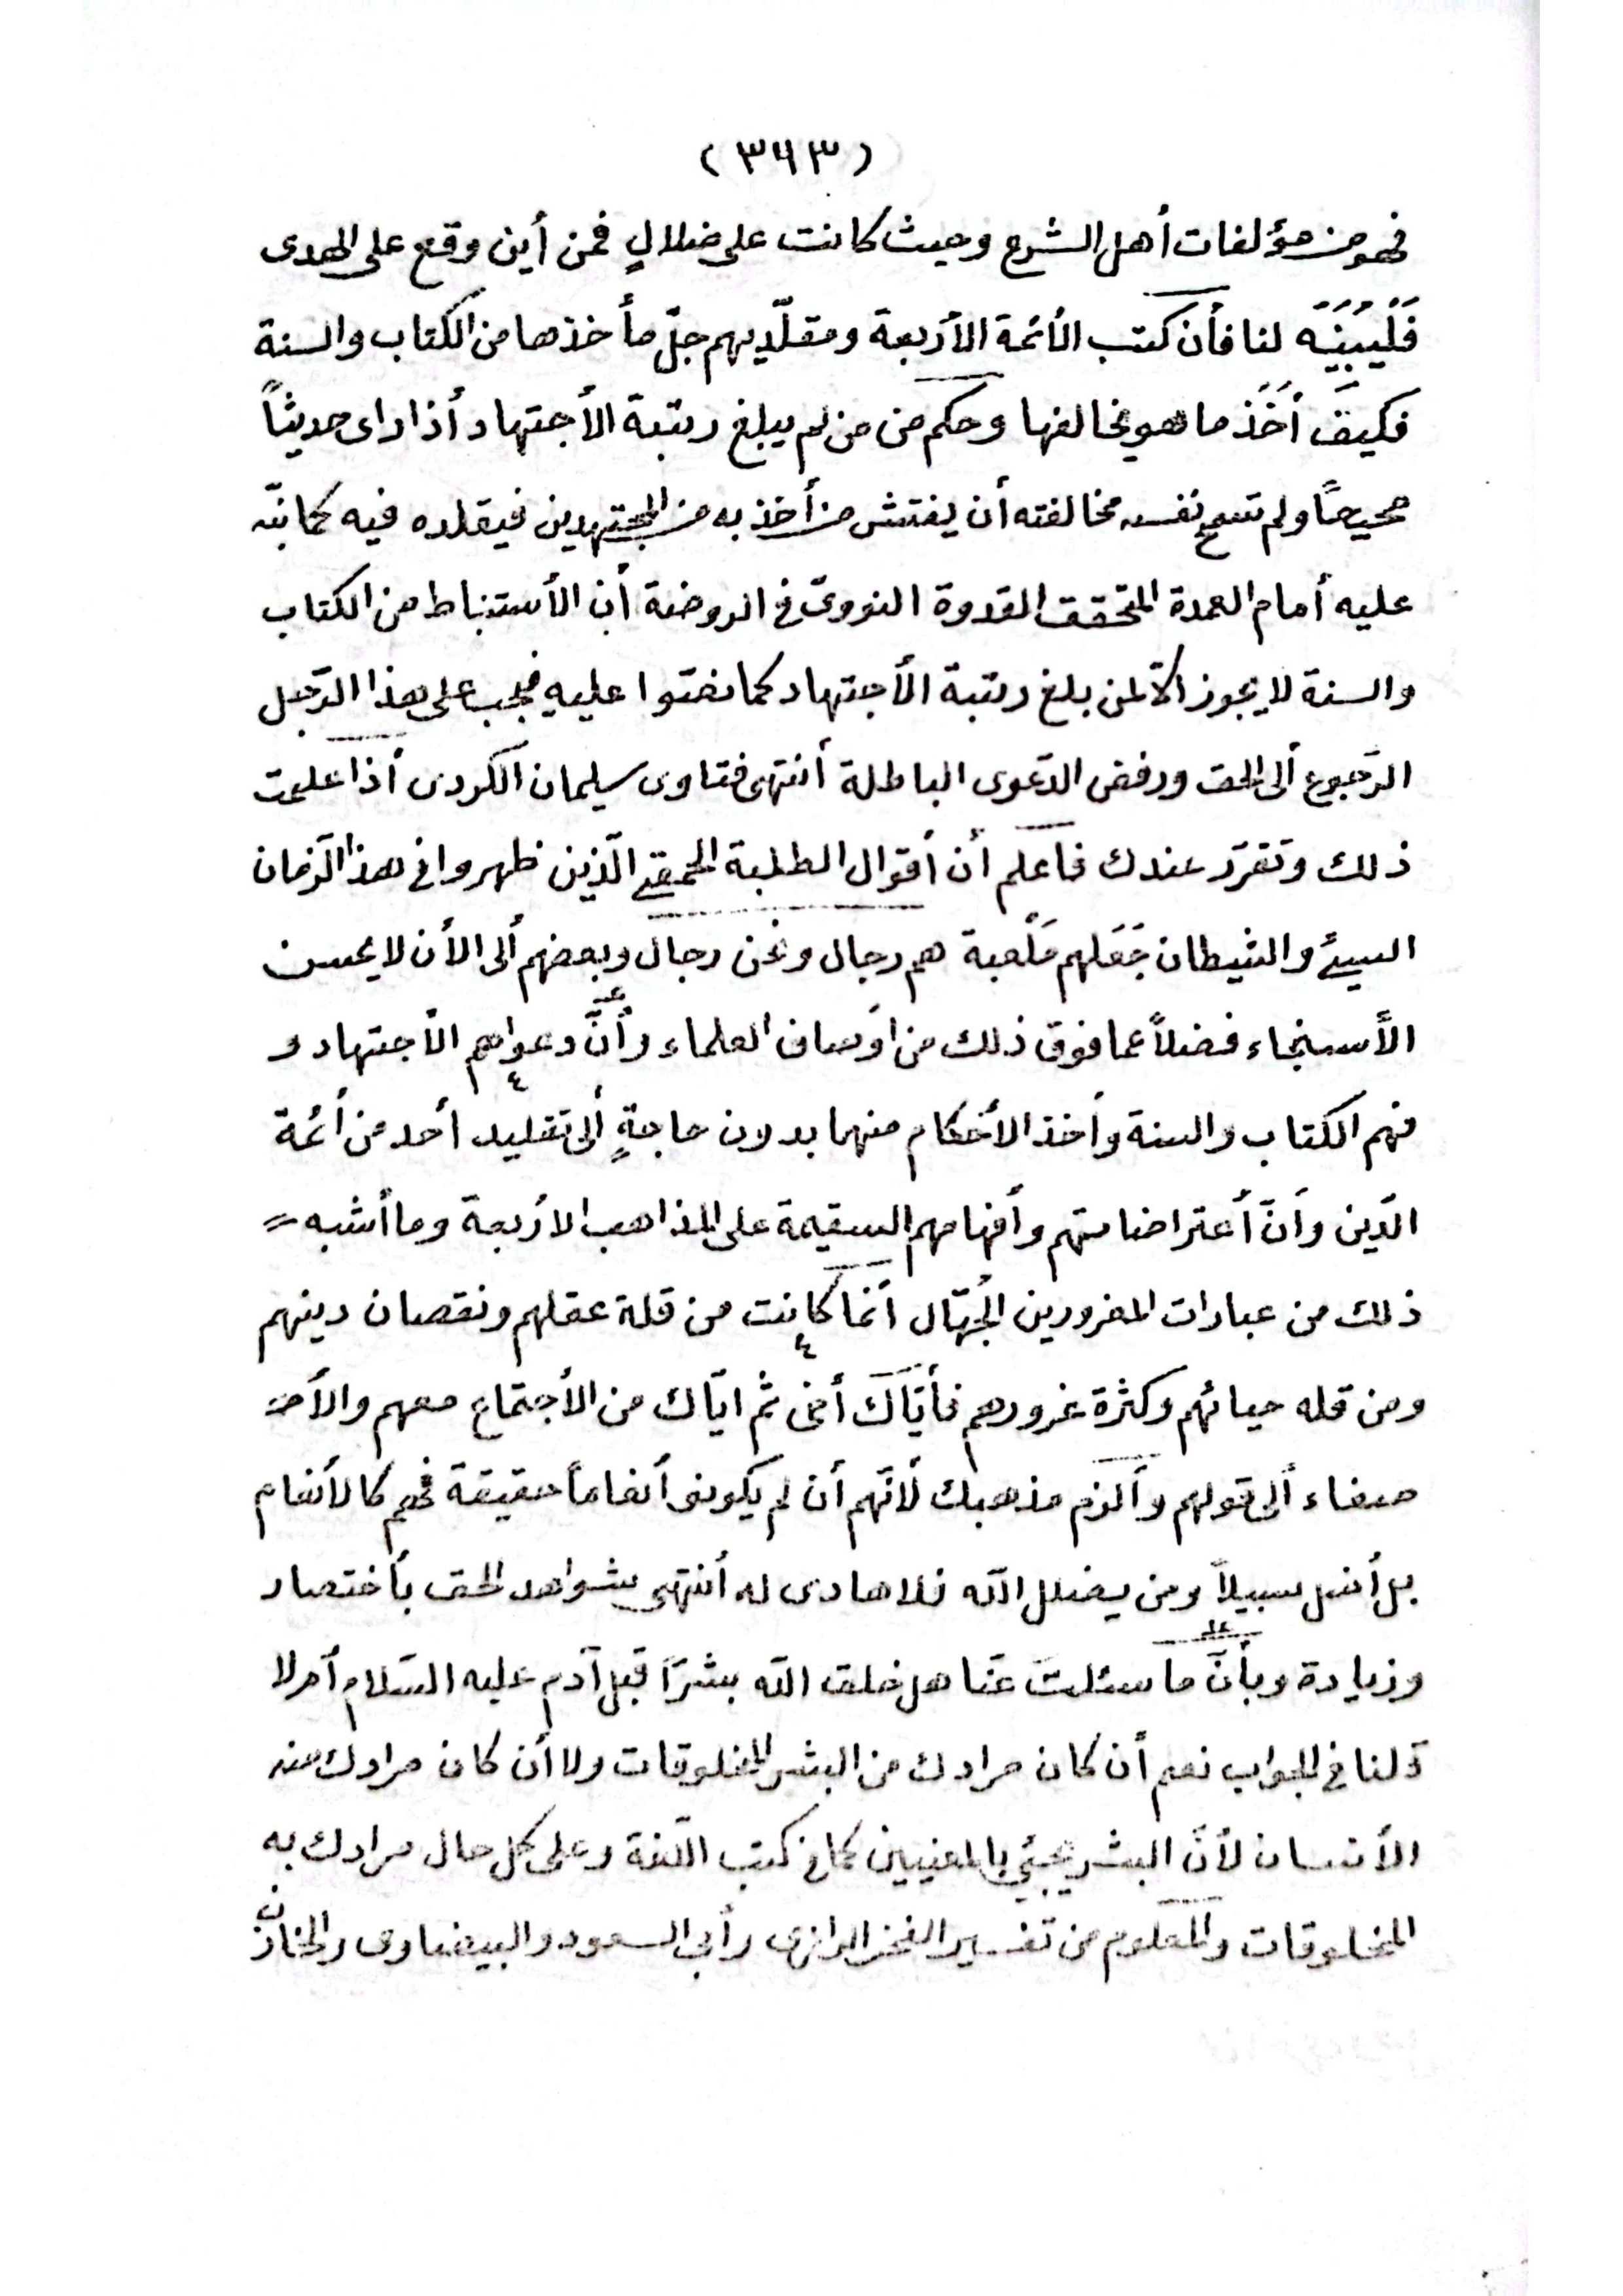 (٣٦٣)
فهو من مؤلفات أهل الشرع وحيث كانت على ضلالٍ فمن أين وقع على الهدى
فَلْيُبَيِّنَه لنا فأن كتب الأئمة الأربعة ومقلّديهم جلّ مأخذها من الكتاب والسنة
فكيفَ أَخَذَ ما هو يخالفها وحكم من من لم يبلغ رتبة الأجتهاد أذا راى حديثاً
صحيحاً ولم تسمح نفسه مخالفته أن يفتش من أخذ به من المجتهدين فيقلده فيه كما نبّه
عليه أمام العمدة المتحقق القدوة النووىّ فى الروضة أن الأستنباط من الكتاب
والسنة لا يجوز ألاّ لمن بلغ رتبة الأجتهاد كما نصّوا عليه فيجب على هذا الرّجل
الرّجوع ألى الحق ورفض الدّعوى الباطلة أنتهى فتاوى سليمان الكردى أذا علمت
ذلك وتقرّر عندك فاعلم أن أقوال الطلبة الحمقى الّذين ظهروا فى هذا الزّمان
السيئ والشيطان جَعَلهم مَلْعبة هم رجال ونحن رجال وبعضهم ألى الأن لا يحسن
الأستنجاء فضلاً عما فوق ذلك من اوصاف العلماء وأنَّ دعواهم الأجتهاد و
فهم الكتاب والسنة وأخذ الأحكام منهما بدون حاجةٍ ألى تقليد أحد من أئمة
الدّين وأنّ أعتراضاتهم وأفهامهم السقيمة على المذاهب الاربعة وما أشبه =
ذلك من عبارات المغرورين الجُهّال أنّما كانت من قلة عقلهم ونقصان دينهم
ومن قله حيائهم وكثرة غرورهم فأيّاكَ أخى ثم ايّاك من الأجتماع معهم والأصـ
صغاء ألى قولهم وألزم مذهبك لأنّهم أن لم يكونوا أنعاماً حقيقة فهم كالأنعام
بل أضل سبيلاً ومن يضلل الله فلا هادى له أنتهى شواهد الحق بأختصار
وزيادة وبأنّ ما سئلتَ عنّا هل خلق الله بشرًا قبل آدم عليه السّلام أم لا
قلنا فى الجواب نعم أن كان مرادك من البشر المخلوقات ولا أن كان مرادك منه
الأنسان لأنّ البشر يجئ بالمعنيين كما فى كتب اللّغة وعلى كل حال مرادك به
المخلوقات والمعلوم من تفسير الفخر الرازى وأبى السعود والبيضاوى والخازن